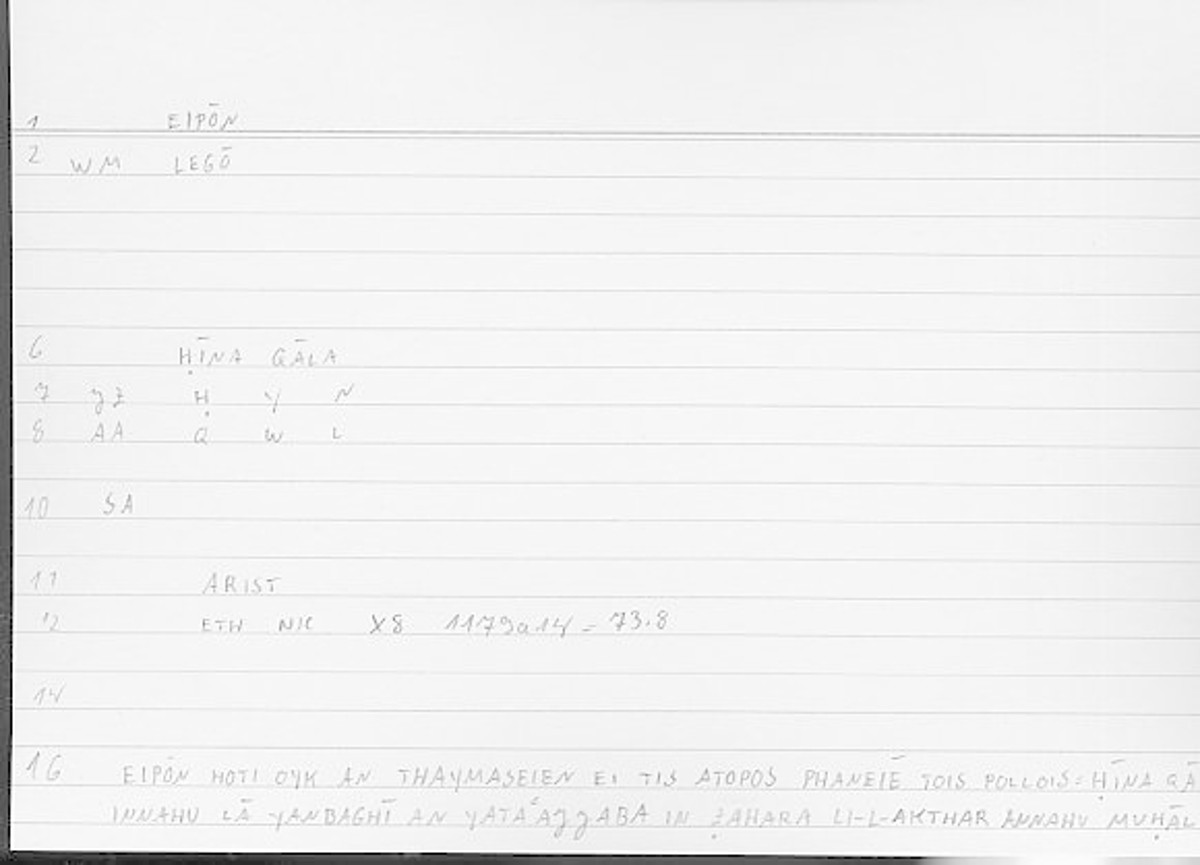 1 EIPŌN
2 WM LEGŌ
6 ḤĪNA QĀLA
7 yz Ḥ Y N
8 AA Q W L
10 SA
11 ARIST
12 ETH NIC X8 1179a14 = 73.8
14
16 EIPŌN HOTI OYK AN THAYMASEIEN EI TIS ATOPOS PHANEIĒ TOIS POLLOIS: ḤĪNA QĀ
INNAHU LĀ YANBAGHĪ AN YATAʿAJJABA IN ẒAHARA LI-L-AKTHAR ANNAHU MUḤĀL